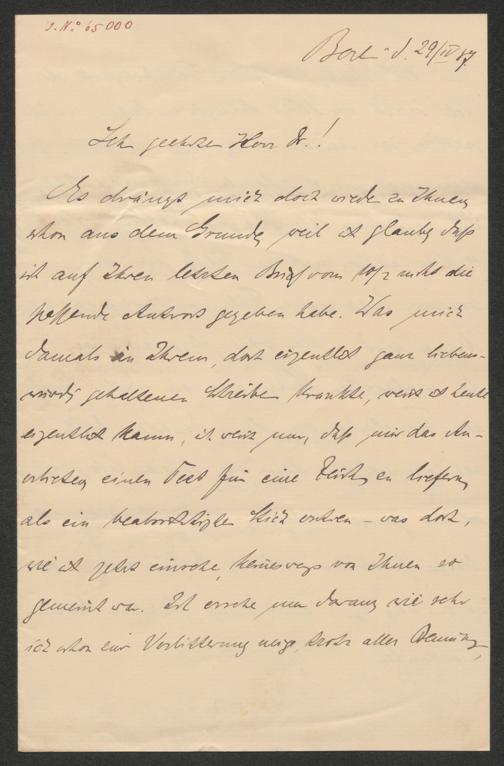 I. N.º 65000
Berlin d. 29/IV 87.
Sehr geehrter Herr Dr.!
Es drängt mich doch wieder zu Ihnen
schon aus dem Grunde, weil ich glaube, daß
ich auf Ihren letzten Brief vom 10/2 nicht die
passende Antwort gegeben habe. Was mich
damals in Ihrem, doch eigentlich ganz liebens-
würdig gehaltenen Schreiben kränkte, weiß ich heute
eigentlich kaum, ich weiß nur, daß mir das An-
erbieten einen Text für eine zu liefern,
als ein beabsichtigter Stich – was doch,
wie ich jetzt einsehe, keineswegs von Ihnen so
gemeint war. Ich ersehe nur daraus, wie sehr
ich schon zur Verbitterung neige, trotz aller